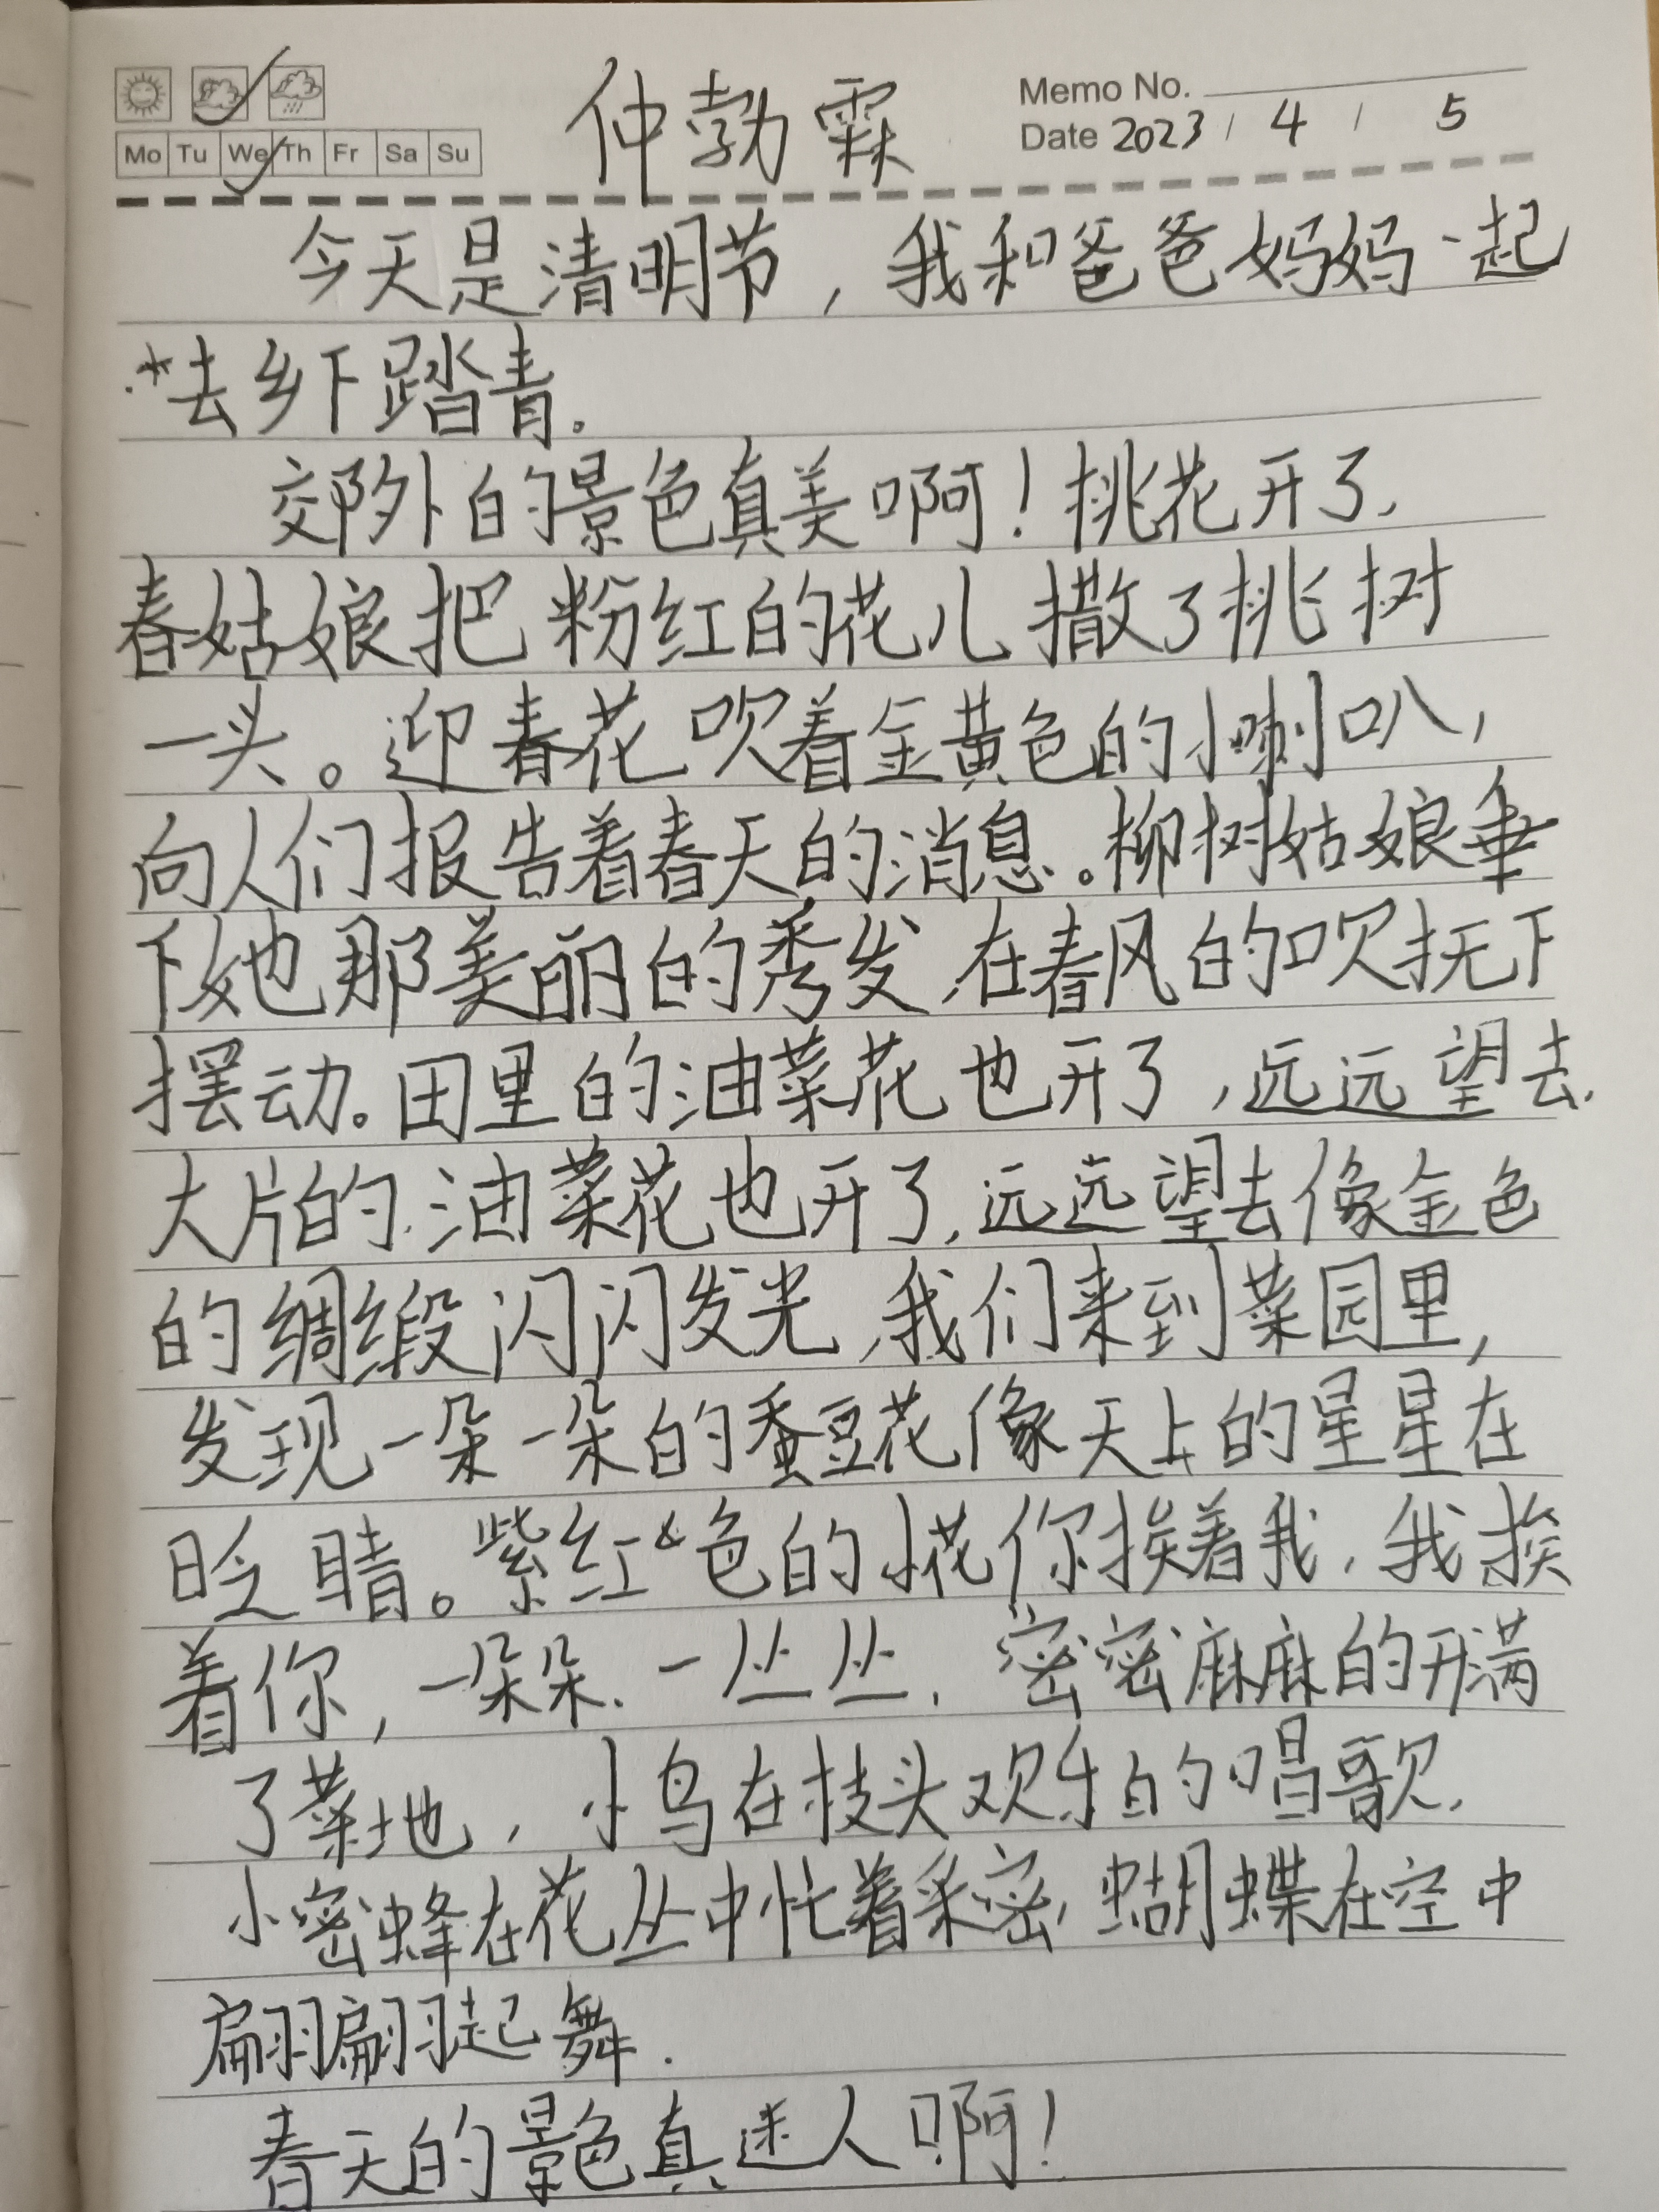 仲勃霖
Memo No.
Date 2023 / 4 / 5
Mo Tu We Th Fr Sa Su
今天是清明节，我和爸爸妈妈一起
去乡下踏青。
郊外的景色真美啊！挑花开了，
春姑娘把粉红的花儿撒了挑树
一头。迎春花吹着金黄色的小喇叭，
向人们报告着春天的消息。柳树姑娘垂
下她那美丽的秀发，在春风的吹抚下
摆动。田里的油菜花也开了，远远望去，
大片的油菜花也开了，远远望去像金色
的绸缎闪闪发光，我们来到菜园里，
发现一朵一朵的蚕豆花像天上的星星在
眨睛。紫红色的小花你挨着我，我挨
着你，一朵朵、一丛丛，密密麻麻的开满
了菜地，小鸟在枝头欢乐的唱歌，
小密蜂在花丛中忙着采密，蝴蝶在空中
翩翩起舞.
春天的景色真迷人啊！